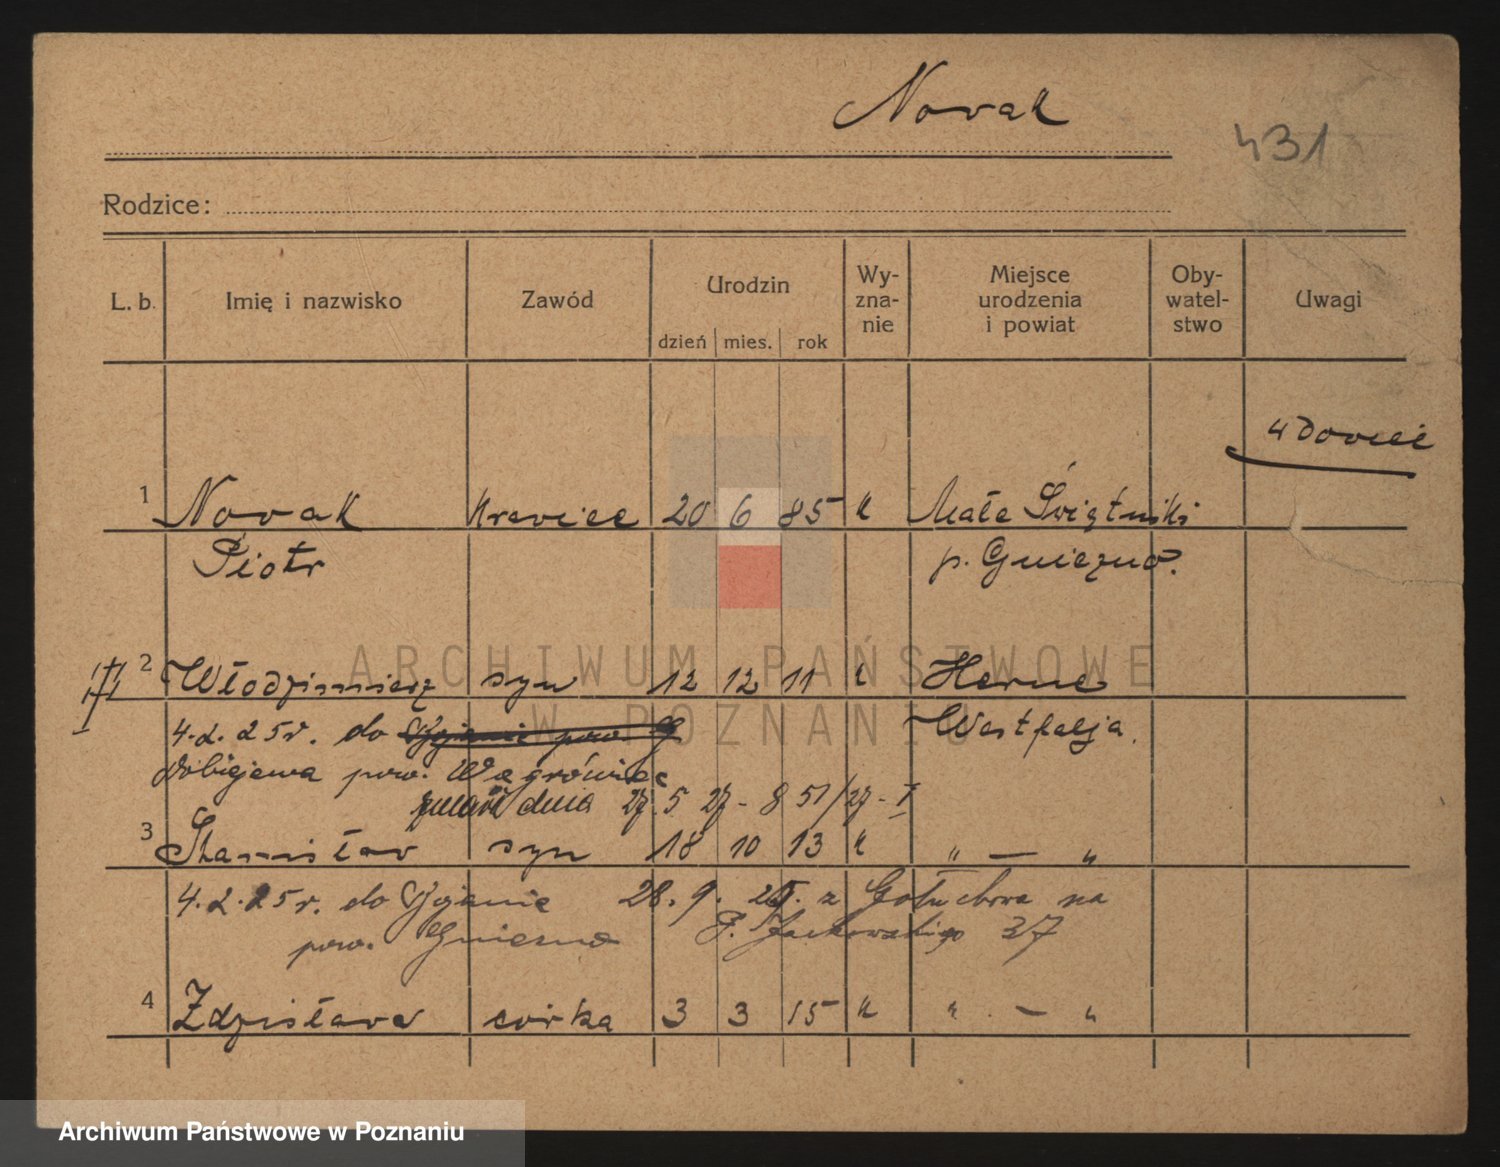 Nowak
431
Rodzice:
L. b. Imię i nazwisko Zawód Urodzin Wy-zna-nie Miejsce urodzenia i powiat Oby-watel-stwo Uwagi
dzień mies. rok
wdowiec
1 Nowak krawiec 20 6 85 k Małe Świątniki
Piotr p. Gniezno.
2 Włodzimierz syn 12 12 11 k Herne
4.2.25r. do pow. G Westfalja.
Dobiejewa pow. Wągrówiec
zmarł dnia 27.5 27 - 851/27 - I
3 Stanisław syn 18 10 13 k " — "
4.2.25r. do 28.9. z Gołuchowa na
pow. Gniezno P. Jackowskiego 37
4 Zdzisława córka 3 3 15 k " — "
ARCHIWUM PAŃSTWOWE
W POZNANIU
Archiwum Państwowe w Poznaniu